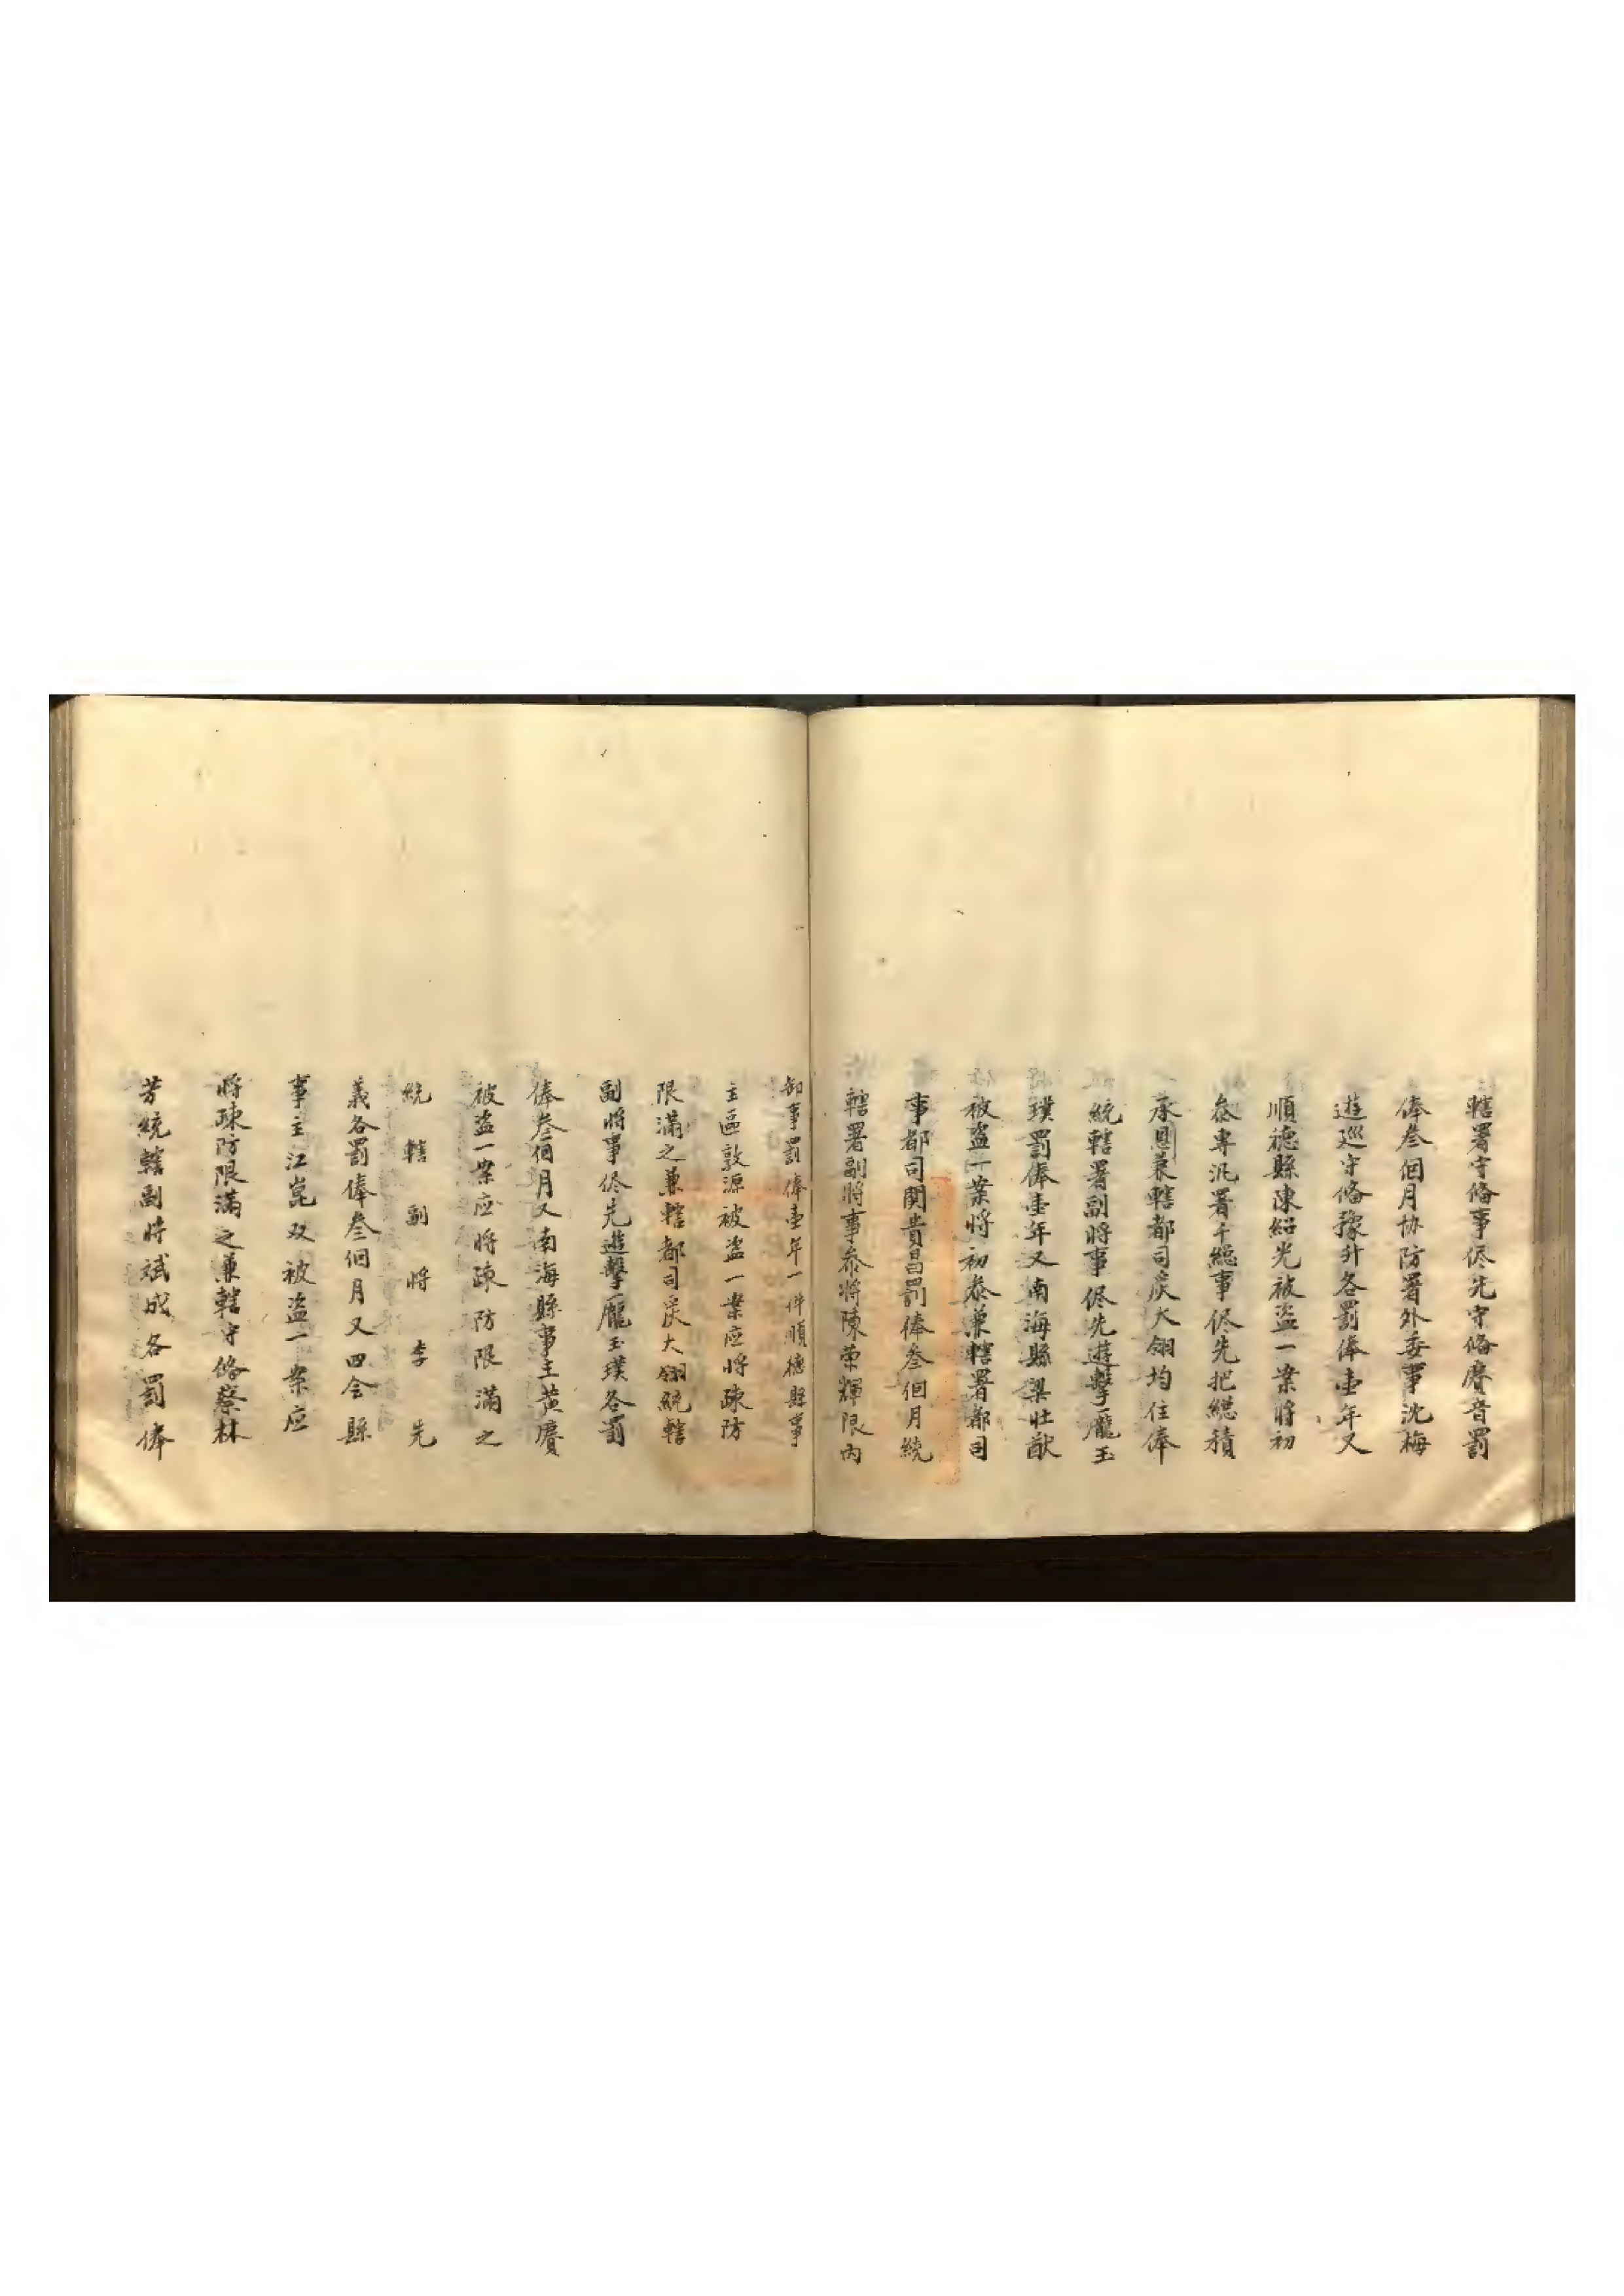 轄署守俻事侭先守俻賡音罰
俸叁個月协防署外委事沈梅
遊巡守俻豫升各罰俸壹年又
順德縣陳紹光被盗一案將初
叅専汛署千緫事侭先把緫積
承恩兼轄都司戾大翎均住俸
統轄署副將事侭先遊擊龐玉
璞罰俸壹年又南海縣梁壮猷
被盗一案将初叅兼轄署都司
事都司関貴昌罰俸叁個月統
轄署副將事叅將陳荣輝限內
卸事罰俸壹年一件順德縣事
主區敦源被盗一案应將疎防
限滿之兼轄都司戾大翎統轄
副將事侭先遊擊龐玉璞各罰
俸叁個月又南海縣事主黄賡
被盗一案应将疎防限滿之
統轄副將李先
義各罰俸叁個月又四会縣
事主江崑双被盗一案应
將疎防限滿之兼轄守俻蔡林
芳統轄副将斌成各罰俸